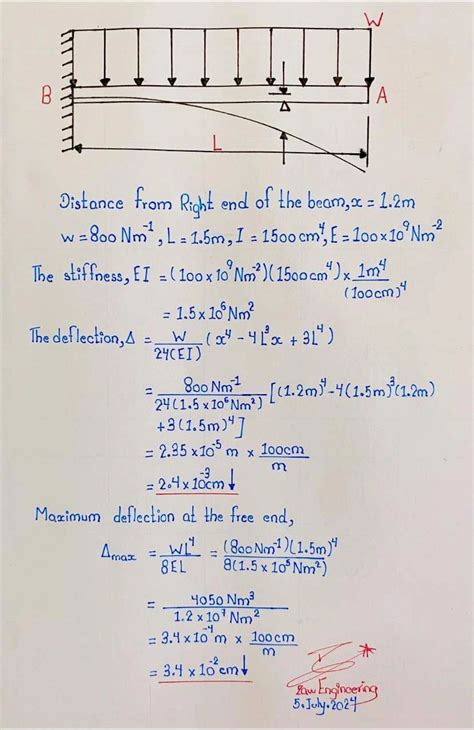 W
B
A
Δ
L
Distance from Right end of the beam, x = 1.2m
w = 800 Nm⁻¹, L = 1.5m, I = 1500cm⁴, E = 100x10⁹ Nm⁻²
The stiffness, EI = (100x10⁹ Nm⁻²)(1500cm⁴) x 1m⁴/(100cm)⁴
= 1.5x10⁶ Nm²
The deflection, Δ = W/24(EI) (x⁴ - 4L³x + 3L⁴)
= 800 Nm⁻¹/24(1.5x10⁶ Nm²) [(1.2m)⁴ - 4(1.5m)³(1.2m)
+ 3(1.5m)⁴]
= 2.35x10⁻⁵ m x 100cm/m
= 2.4x10⁻³cm↓
Maximum deflection at the free end,
Δmax = WL⁴/8EL = (800Nm⁻¹)(1.5m)⁴/8(1.5x10⁵Nm²)
= 4050 Nm³/1.2x10⁷ Nm²
= 3.4x10⁻⁴ m x 100cm/m
= 3.4x10⁻² cm↓
Engineering
5.July.2024